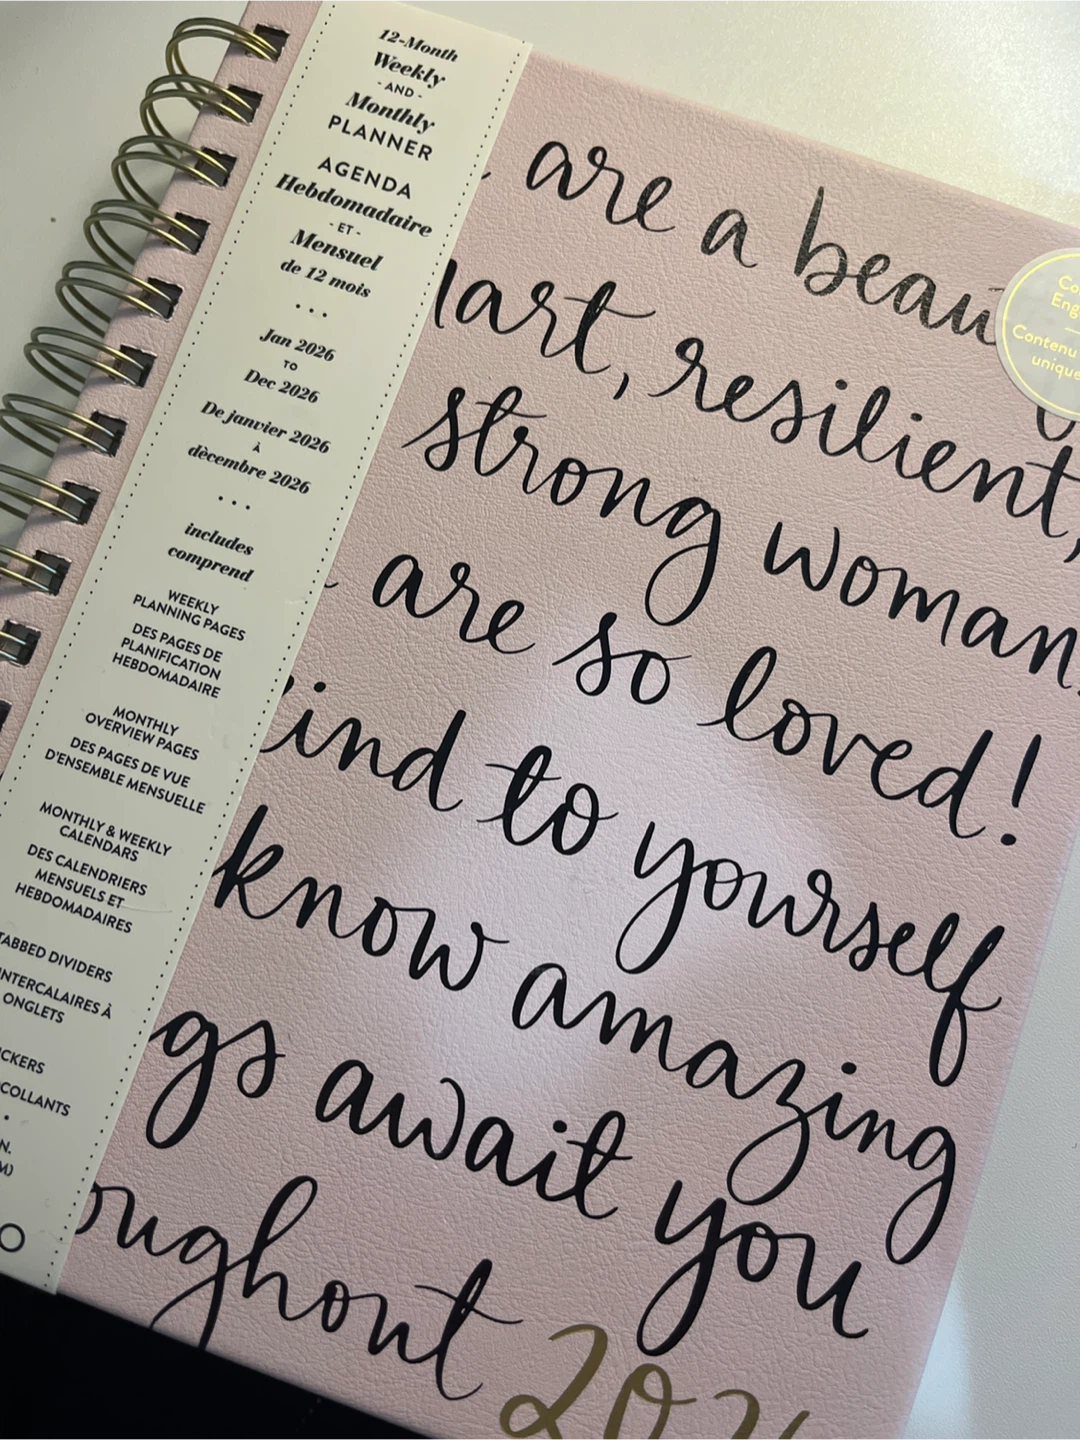 12-Month
Weekly
- AND -
Monthly
PLANNER
AGENDA
Hebdomadaire
- ET -
Mensuel
de 12 mois
Jan 2026
TO
Dec 2026
De janvier 2026
À
dècembre 2026
includes
comprend
WEEKLY
PLANNING PAGES
DES PAGES DE
PLANIFICATION
HEBDOMADAIRE
MONTHLY
OVERVIEW PAGES
DES PAGES DE VUE
D'ENSEMBLE MENSUELLE
MONTHLY & WEEKLY
CALENDARS
DES CALENDRIERS
MENSUELS ET
HEBDOMADAIRES
TABBED DIVIDERS
INTERCALAIRES À
ONGLETS
are a
resilient,
strong woman.
are so loved!
to yourself
know amazing
await you
Contenu
unique